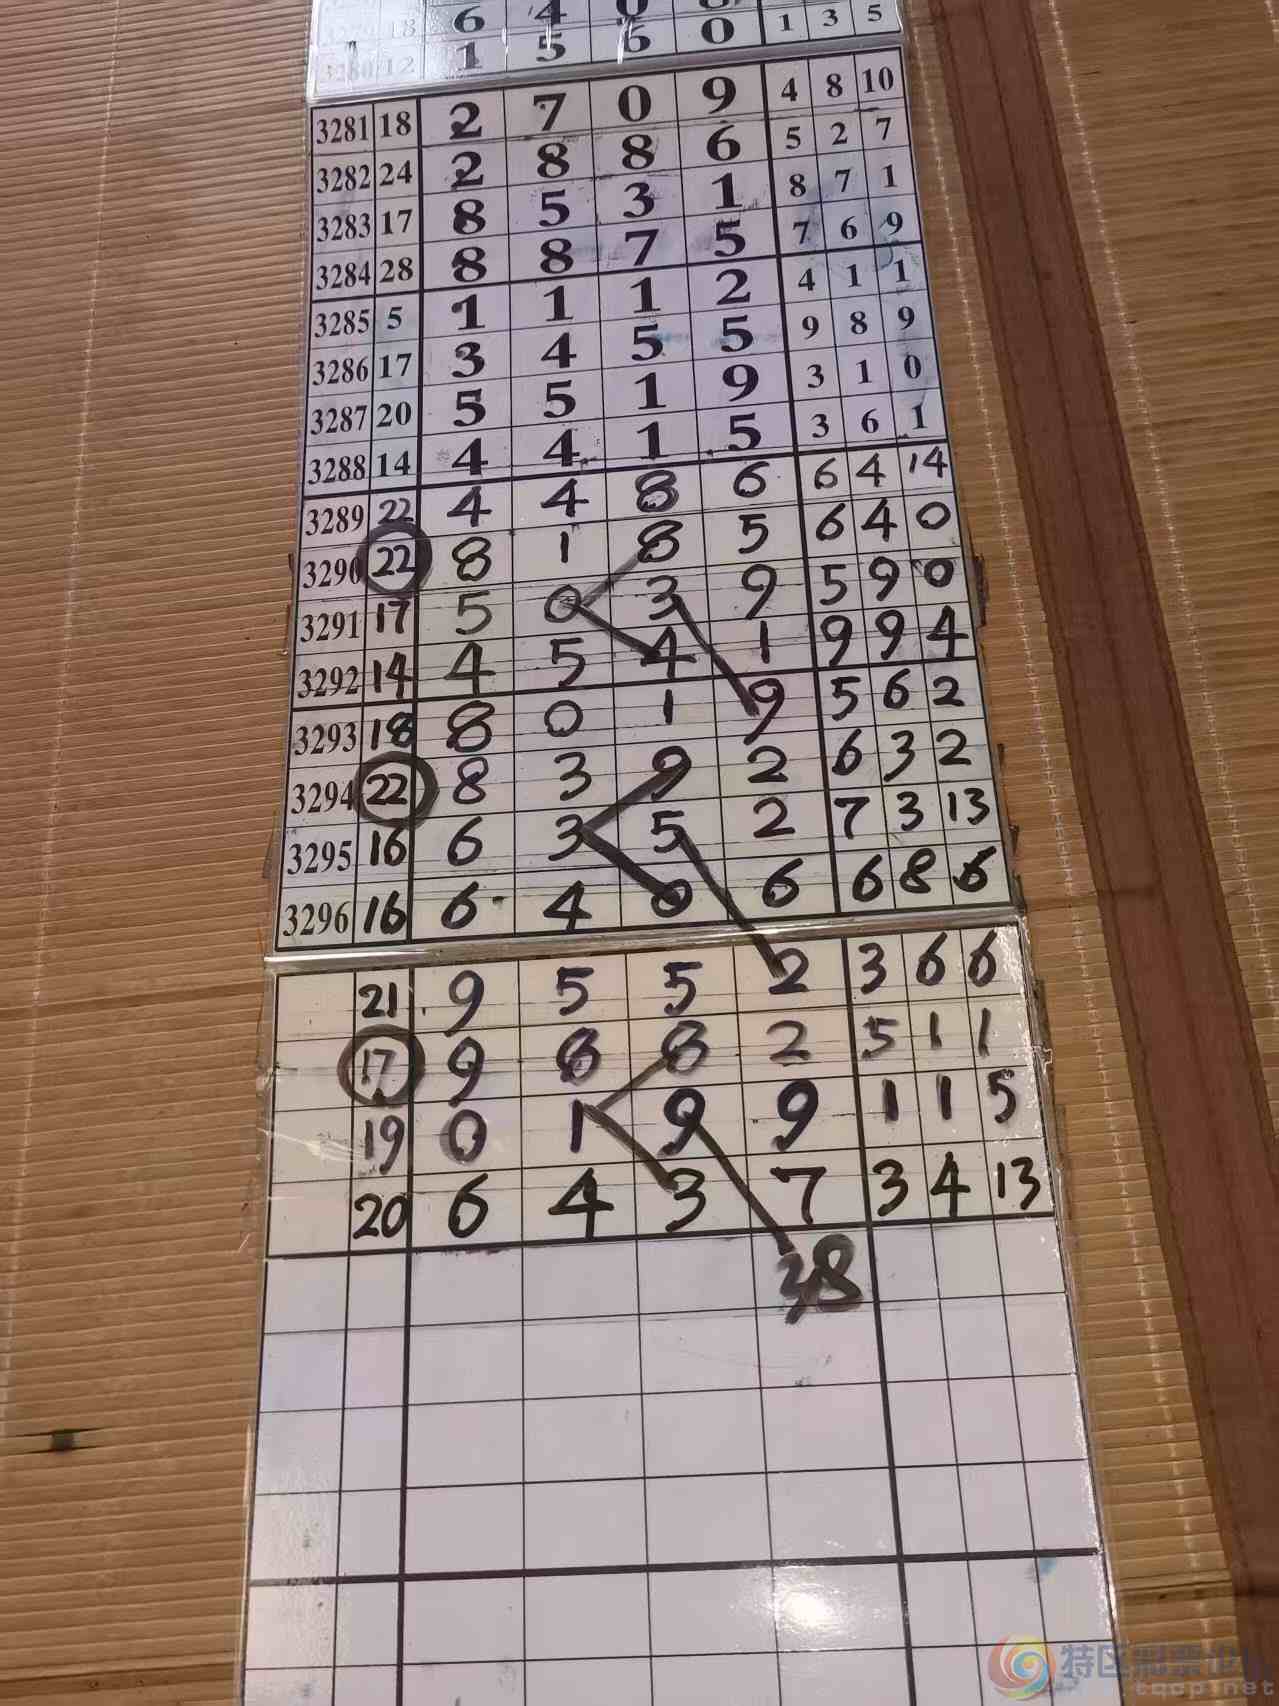 18 6 4 0 8 1 3 5
3280 12 1 5 6 0
3281 18 2 7 0 9 4 8 10
3282 24 2 8 8 6 5 2 7
3283 17 8 5 3 1 8 7 1
3284 28 8 8 7 5 7 6 9
3285 5 1 1 1 2 4 1 1
3286 17 3 4 5 5 9 8 9
3287 20 5 5 1 9 3 1 0
3288 14 4 4 1 5 3 6 1
3289 22 4 4 8 6 6 4 14
3290 22 8 1 8 5 6 4 0
3291 17 5 0 3 9 5 9 0
3292 14 4 5 4 1 9 9 4
3293 18 8 0 1 9 5 6 2
3294 22 8 3 9 2 6 3 2
3295 16 6 3 5 2 7 3 13
3296 16 6 4 0 6 6 8 6
21 9 5 5 2 3 6 6
17 9 8 2 5 1 1
19 0 1 9 9 1 1 5
20 6 4 3 7 3 4 13
38
特区彩票论坛
tqcp.net